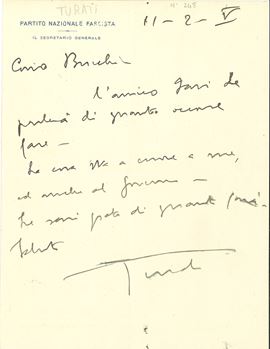 TURATI
N° 248
PARTITO NAZIONALE FASCISTA
IL SEGRETARIO GENERALE
11-2-V
Caro
l'amico ti
parlerà di quanto occorre
fare —
La cosa sta a cuore a me,
ed anche al Governo —
Le sarò grato di quanto farà
Saluti
Turati